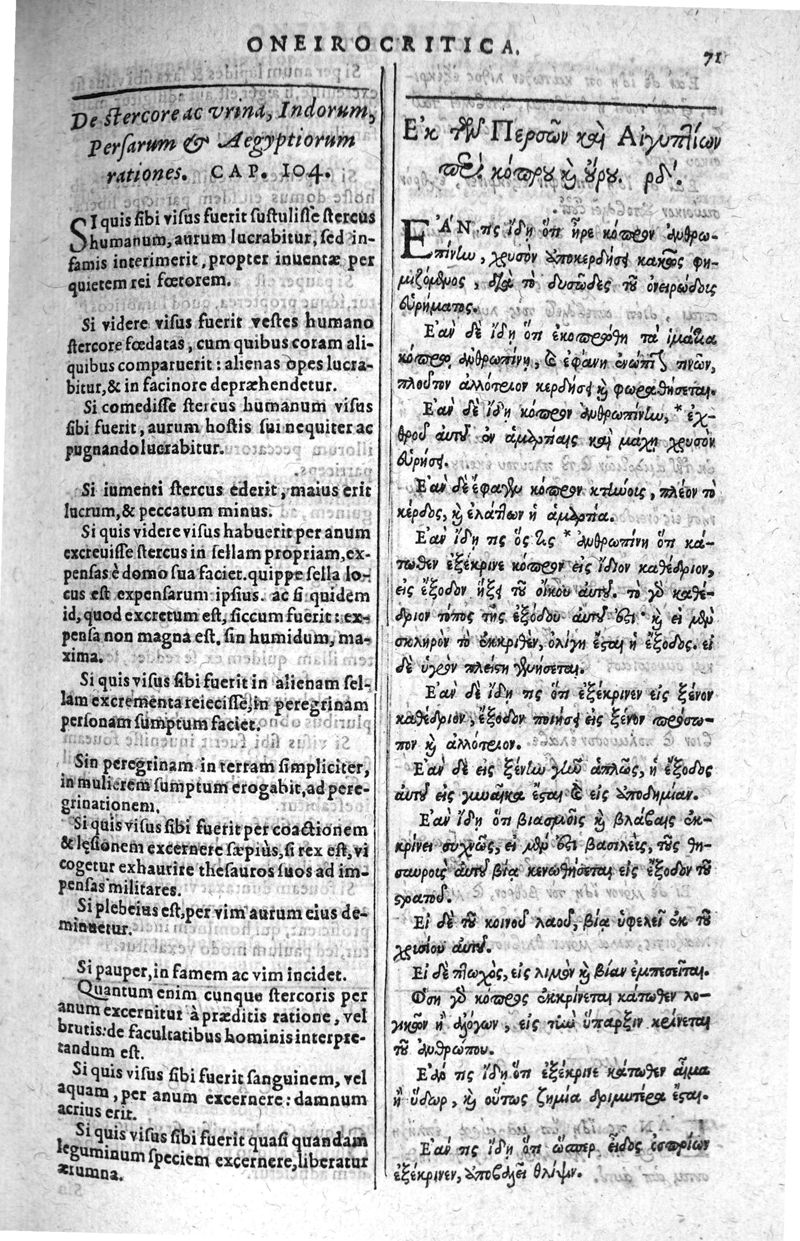 ONEIROCRITICA.
71
De stercore ac vrina, Indorum,
Persarum & Aegyptiorum
rationes. CAP. 104.
SI quis sibi visus fuerit sustulisse stercus
humanum, aurum lucrabitur, sed in-
famis interimerit, propter inuentæ per
quietem rei fœtorem.
Si videre visus fuerit vestes humano
stercore fœdatas, cum quibus coram ali-
quibus comparuerit: alienas opes lucra-
bitur, & in facinore depræhendetur.
Si comedisse stercus humanum visus
sibi fuerit, aurum hostis sui nequiter ac
pugnando lucrabitur.
Si iumenti stercus ederit, maius erit
lucrum, & peccatum minus.
Si quis videre visus habuerit per anum
excreuisse stercus in sellam propriam, ex-
pensas è domo sua faciet. quippe sella lo-
cus est expensarum ipsius. ac si quidem
id, quod excretum est, siccum fuerit: ex-
pensa non magna est, sin humidum, ma-
xima.
Si quis visus sibi fuerit in alienam sel-
lam excrementa reiecisse, in peregrinam
personam sumptum faciet.
Sin peregrinam in terram simpliciter,
in mulierem sumptum erogabit, ad pere-
grinationem.
Si quis visus sibi fuerit per coactionem
& lęsionem excernere sæpius, si rex est, vi
cogetur exhaurire thesauros suos ad im-
pensas militares.
Si plebeius est, per vim aurum eius de-
minuetur.
Si pauper, in famem ac vim incidet.
Quantum enim cunque stercoris per
anum excernitur à præditis ratione, vel
brutis: de facultatibus hominis interpre-
tandum est.
Si quis visus sibi fuerit sanguinem, vel
aquam, per anum excernere: damnum
acrius erit.
Si quis visus sibi fuerit quasi quandam
leguminum speciem excernere, liberatur
ærumna.
Ἐκ τῶν Περσῶν καὶ Αἰγυπτίων
περὶ κόπρου καὶ οὔρου. ρδʹ.
ἘΑΝ τις ἴδῃ ὅτι ἦρε κόπρον ἀνθρω-
πίνην, χρυσὸν ὑποκερδήσει κακῶς φη-
μιζόμενος, διὰ τὸ δυσῶδες τοῦ ὀνειρώδοις
εὑρήματος.
Ἐὰν δὲ ἴδῃ ὅτι ἐκοπρώθη τὰ ἱμάτια
κόπρῳ ἀνθρωπίνῃ, καὶ ἐφάνη ἐνώπιόν τινων,
πλοῦτον ἀλλότριον κερδήσει καὶ φωραθήσεται.
Ἐὰν δὲ ἴδῃ κόπρον ἀνθρωπίνην, * ἐχ-
θροῦ αὐτοῦ ἐν ἁμαρτίαις καὶ μάχῃ χρυσὸν
εὑρήσει.
Ἐὰν δὲ ἔφαγεν κόπρον κτήνοις, πλέον τὸ
κέρδος, καὶ ἐλάττων ἡ ἁμαρτία.
Ἐὰν ἴδῃ τις * ἀνθρωπίνη ὅτι κά-
τωθεν ἐξέκρινε κόπρον εἰς ἴδιον καθέδριον,
εἰς ἔξοδον ἥξει τοῦ οἴκου αὐτοῦ. τὸ γὰρ καθέ-
δριον τόπος τῆς ἐξόδου αὐτοῦ ἐστι· καὶ εἰ μὲν
σκληρὸν τὸ ἐκκριθὲν, ὀλίγη ἔσται ἡ ἔξοδος. εἰ
δὲ ὑγρὸν πλείστη γενήσεται.
Ἐὰν δὲ ἴδῃ τις ὅτι ἐξέκρινεν εἰς ξένον
καθέδριον, ἔξοδον ποιήσει εἰς ξένον πρόσω-
πον καὶ ἀλλότριον.
Ἐὰν δὲ εἰς ξένην γῆν ἁπλῶς, ἡ ἔξοδος
αὐτοῦ εἰς γυναῖκα ἔσται καὶ εἰς ἀποδημίαν.
Ἐὰν ἴδῃ ὅτι βιασμοῖς καὶ βλάβαις ἐκ-
κρίνει συχνῶς, εἰ μὲν ἐστι βασιλεὺς, τοὺς θη-
σαυροὺς αὐτοῦ βίᾳ κενωθήσεται εἰς ἔξοδον τοῦ
στρατοῦ.
Εἰ δὲ τοῦ κοινοῦ λαοῦ, βίᾳ ὑφελεῖ ἐκ τοῦ
χρυσίου αὐτοῦ.
Εἰ δὲ πτωχὸς, εἰς λιμὸν καὶ βίαν ἐμπεσεῖται.
Ὅση γὰρ κόπρος ἐκκρίνεται κάτωθεν λο-
γικῶν ἢ ἀλόγων, εἰς τὴν ὕπαρξιν κρίνεται
τοῦ ἀνθρώπου.
Ἐάν τις ἴδῃ ὅτι ἐξέκρινε κάτωθεν αἷμα
ἢ ὕδωρ, καὶ οὕτως ζημία δριμυτέρα ἔσται.
Ἐάν τις ἴδῃ ὅτι ὥσπερ εἶδος ὀσπρίων
ἐξέκρινεν, ἀποβάλλει θλίψιν.